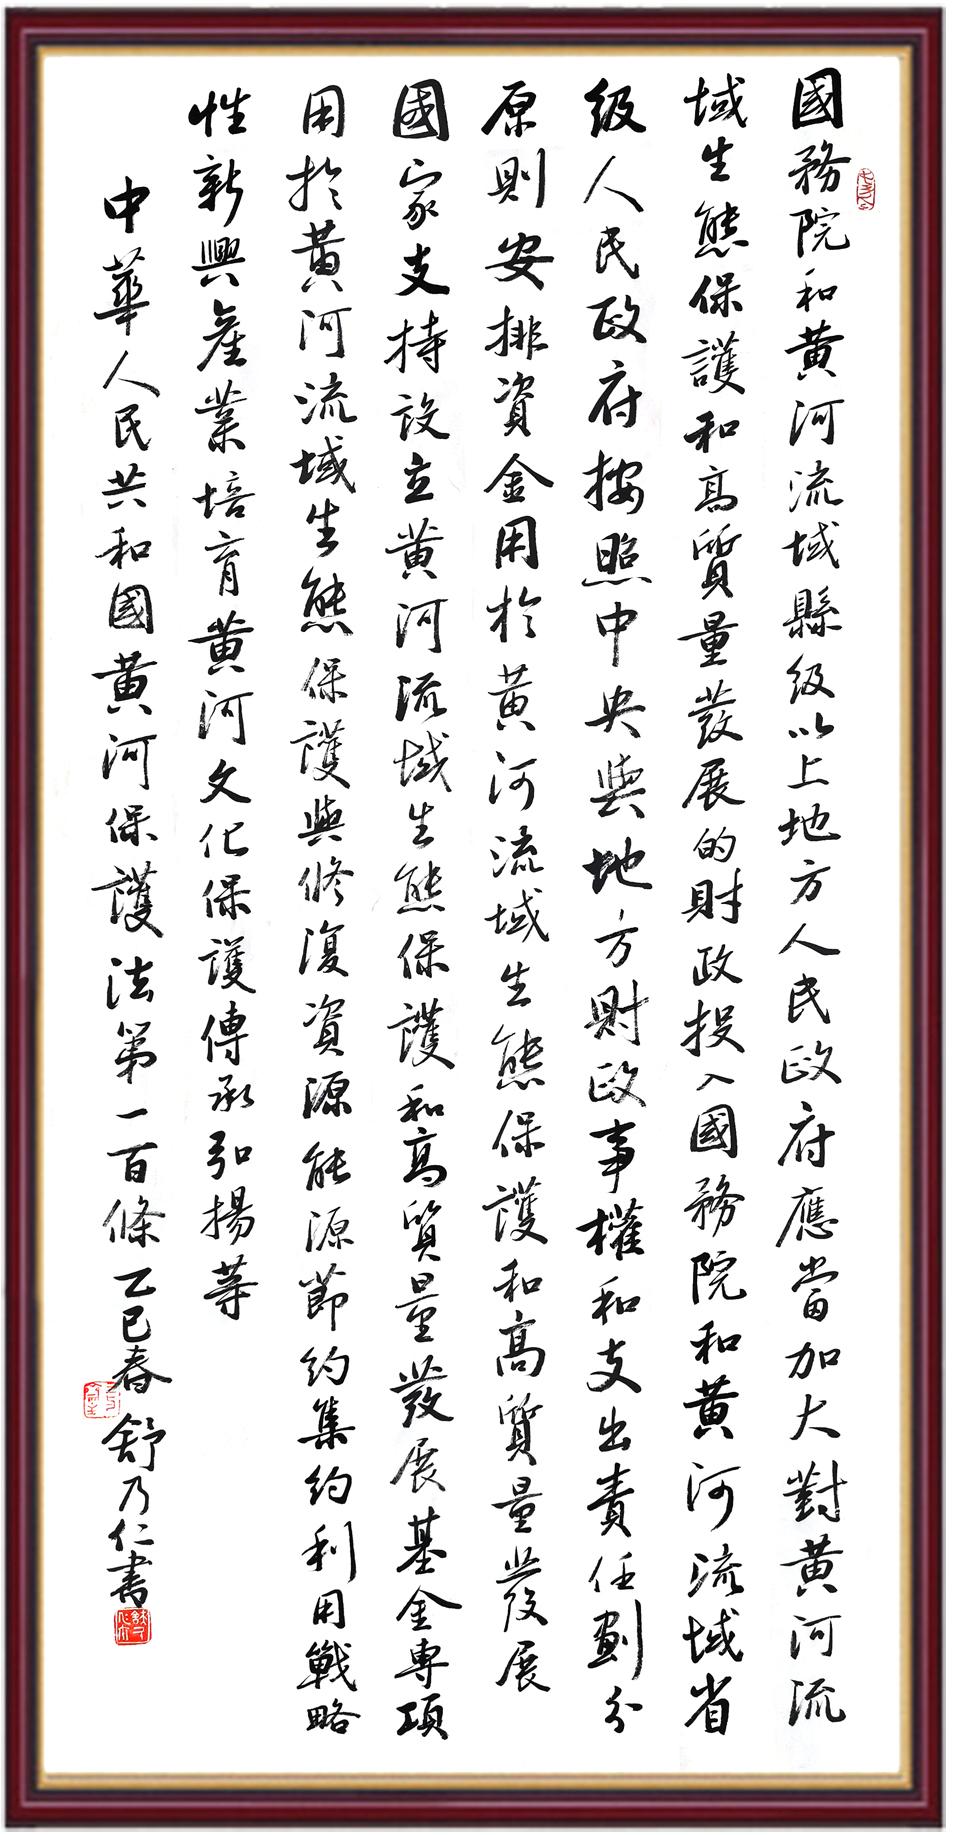 國務院和黃河流域縣級以上地方人民政府應當加大對黃河流
域生態保護和高質量發展的財政投入國務院和黃河流域省
級人民政府按照中央與地方財政事權和支出責任劃分
原則安排資金用於黃河流域生態保護和高質量發展
國家支持設立黃河流域生態保護和高質量發展基金專項
用於黃河流域生態保護與修復資源能源節約集約利用戰略
性新興產業培育黃河文化保護傳承弘揚等
中華人民共和國黃河保護法第一百條乙巳春舒乃仁書